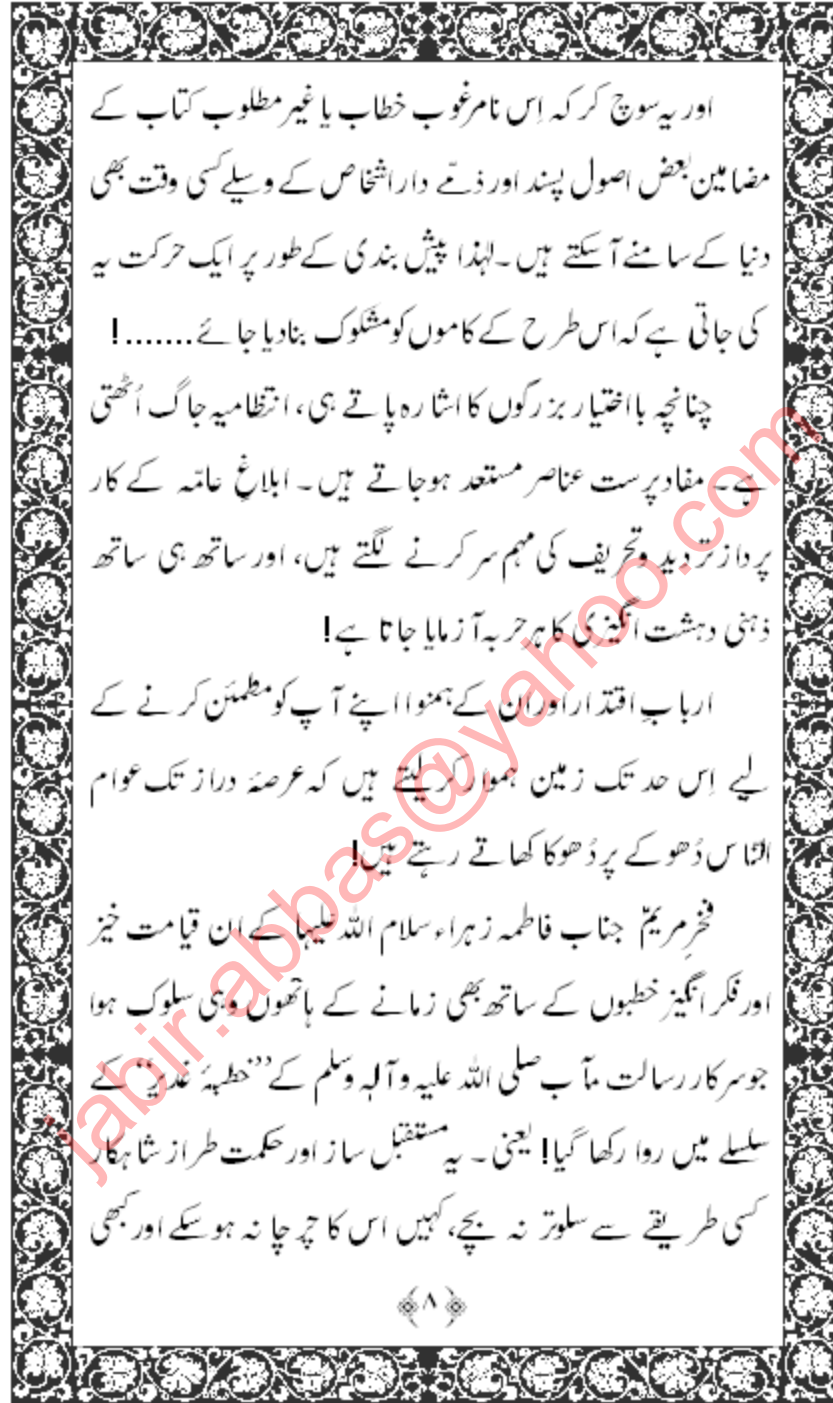 اور یہ سوچ کر کہ اِس نامرغوب خطاب یا غیر مطلوب کتاب کے
مضامین بعض اصول پسند اور ذمّے دار اشخاص کے وسیلے کسی وقت بھی
دنیا کے سامنے آسکتے ہیں۔ لہٰذا پیش بندی کے طور پر ایک حرکت یہ
کی جاتی ہے کہ اس طرح کے کاموں کو مشکوک بنادیا جائے.......!
چنانچہ بااختیار بزرگوں کا اشارہ پاتے ہی، انتظامیہ جاگ اُٹھتی
ہے۔ مفاد پرست عناصر مستعد ہوجاتے ہیں۔ ابلاغِ عامّہ کے کار
پرداز تردید وتحریف کی مہم سر کرنے لگتے ہیں، اور ساتھ ہی ساتھ
ذہنی دہشت انگیزی کا ہر حربہ آزمایا جاتا ہے!
اربابِ اقتدار اور ان کے ہمنوا اپنے آپ کو مطمئن کرنے کے
لیے اِس حد تک زمین ہموار کرلیتے ہیں کہ عرصۂ دراز تک عوام
النّاس دُھوکے پر دُھوکا کھاتے رہتے ہیں!
فخرِ مریمؑ جناب فاطمہ زہراء سلام اللہ علیہا کے ان قیامت خیز
اور فکر انگیز خطبوں کے ساتھ بھی زمانے کے ہاتھوں وہی سلوک ہوا
جو سرکار رسالت مآب صلی اللہ علیہ وآلہ وسلم کے ’’خطبۂ غدیر‘‘ کے
سلسلے میں روا رکھا گیا! یعنی۔ یہ مستقبل ساز اور حکمت طراز شاہکار
کسی طریقے سے سلوتر نہ بچے، کہیں اس کا چرچا نہ ہوسکے اور کبھی
﴿۸﴾
jabir.abbas@yahoo.com